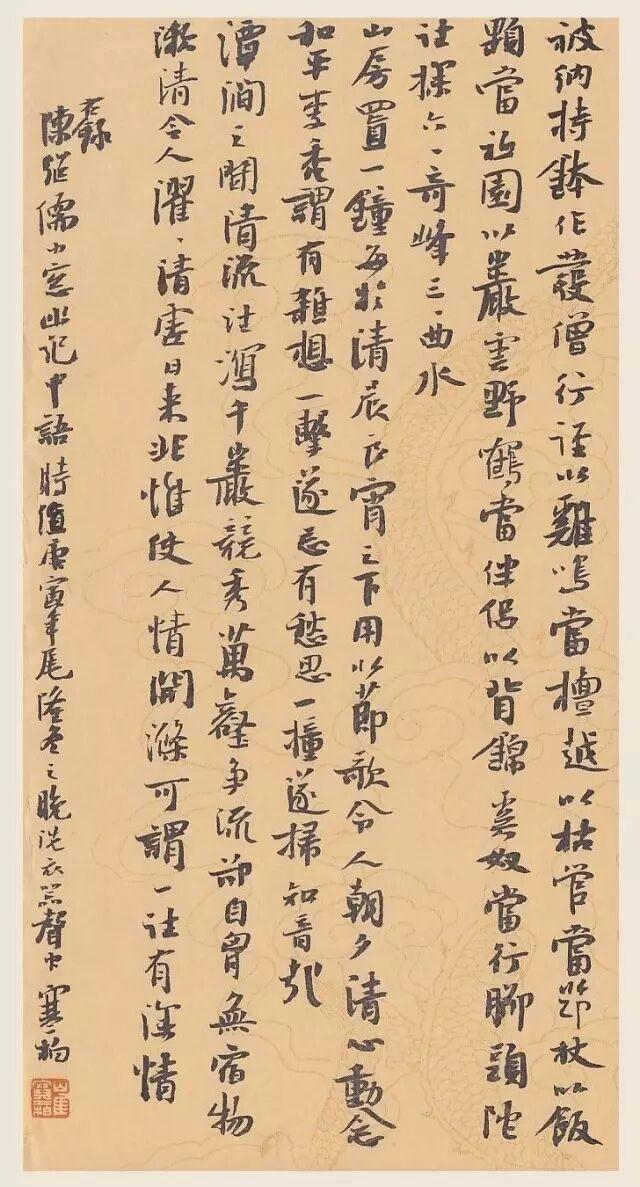 被納持鉢作發僧行徑以雞鳴當檀越以枯管當筇杖以飯
顆當祗園以巖雲野鶴當伴侶以背錦奚奴當行腳頭陀
往探六、奇峰三、曲水
山房置一鐘每於清晨良宵之下用以節歌令人朝夕清心動念
和平李禿謂有雜想一擊遂忘有愁思一撞遂掃知音哉
潭澗之間清流注瀉千巖競秀萬壑爭流卻自胸無宿物
漱清令人濯、清虛日來非惟使人情開滌可謂一往有深情
右錄
陳繼儒小窓幽記中語時值庚寅年尾隆冬之晚洗衣器聲中寒柏
崔寒柏